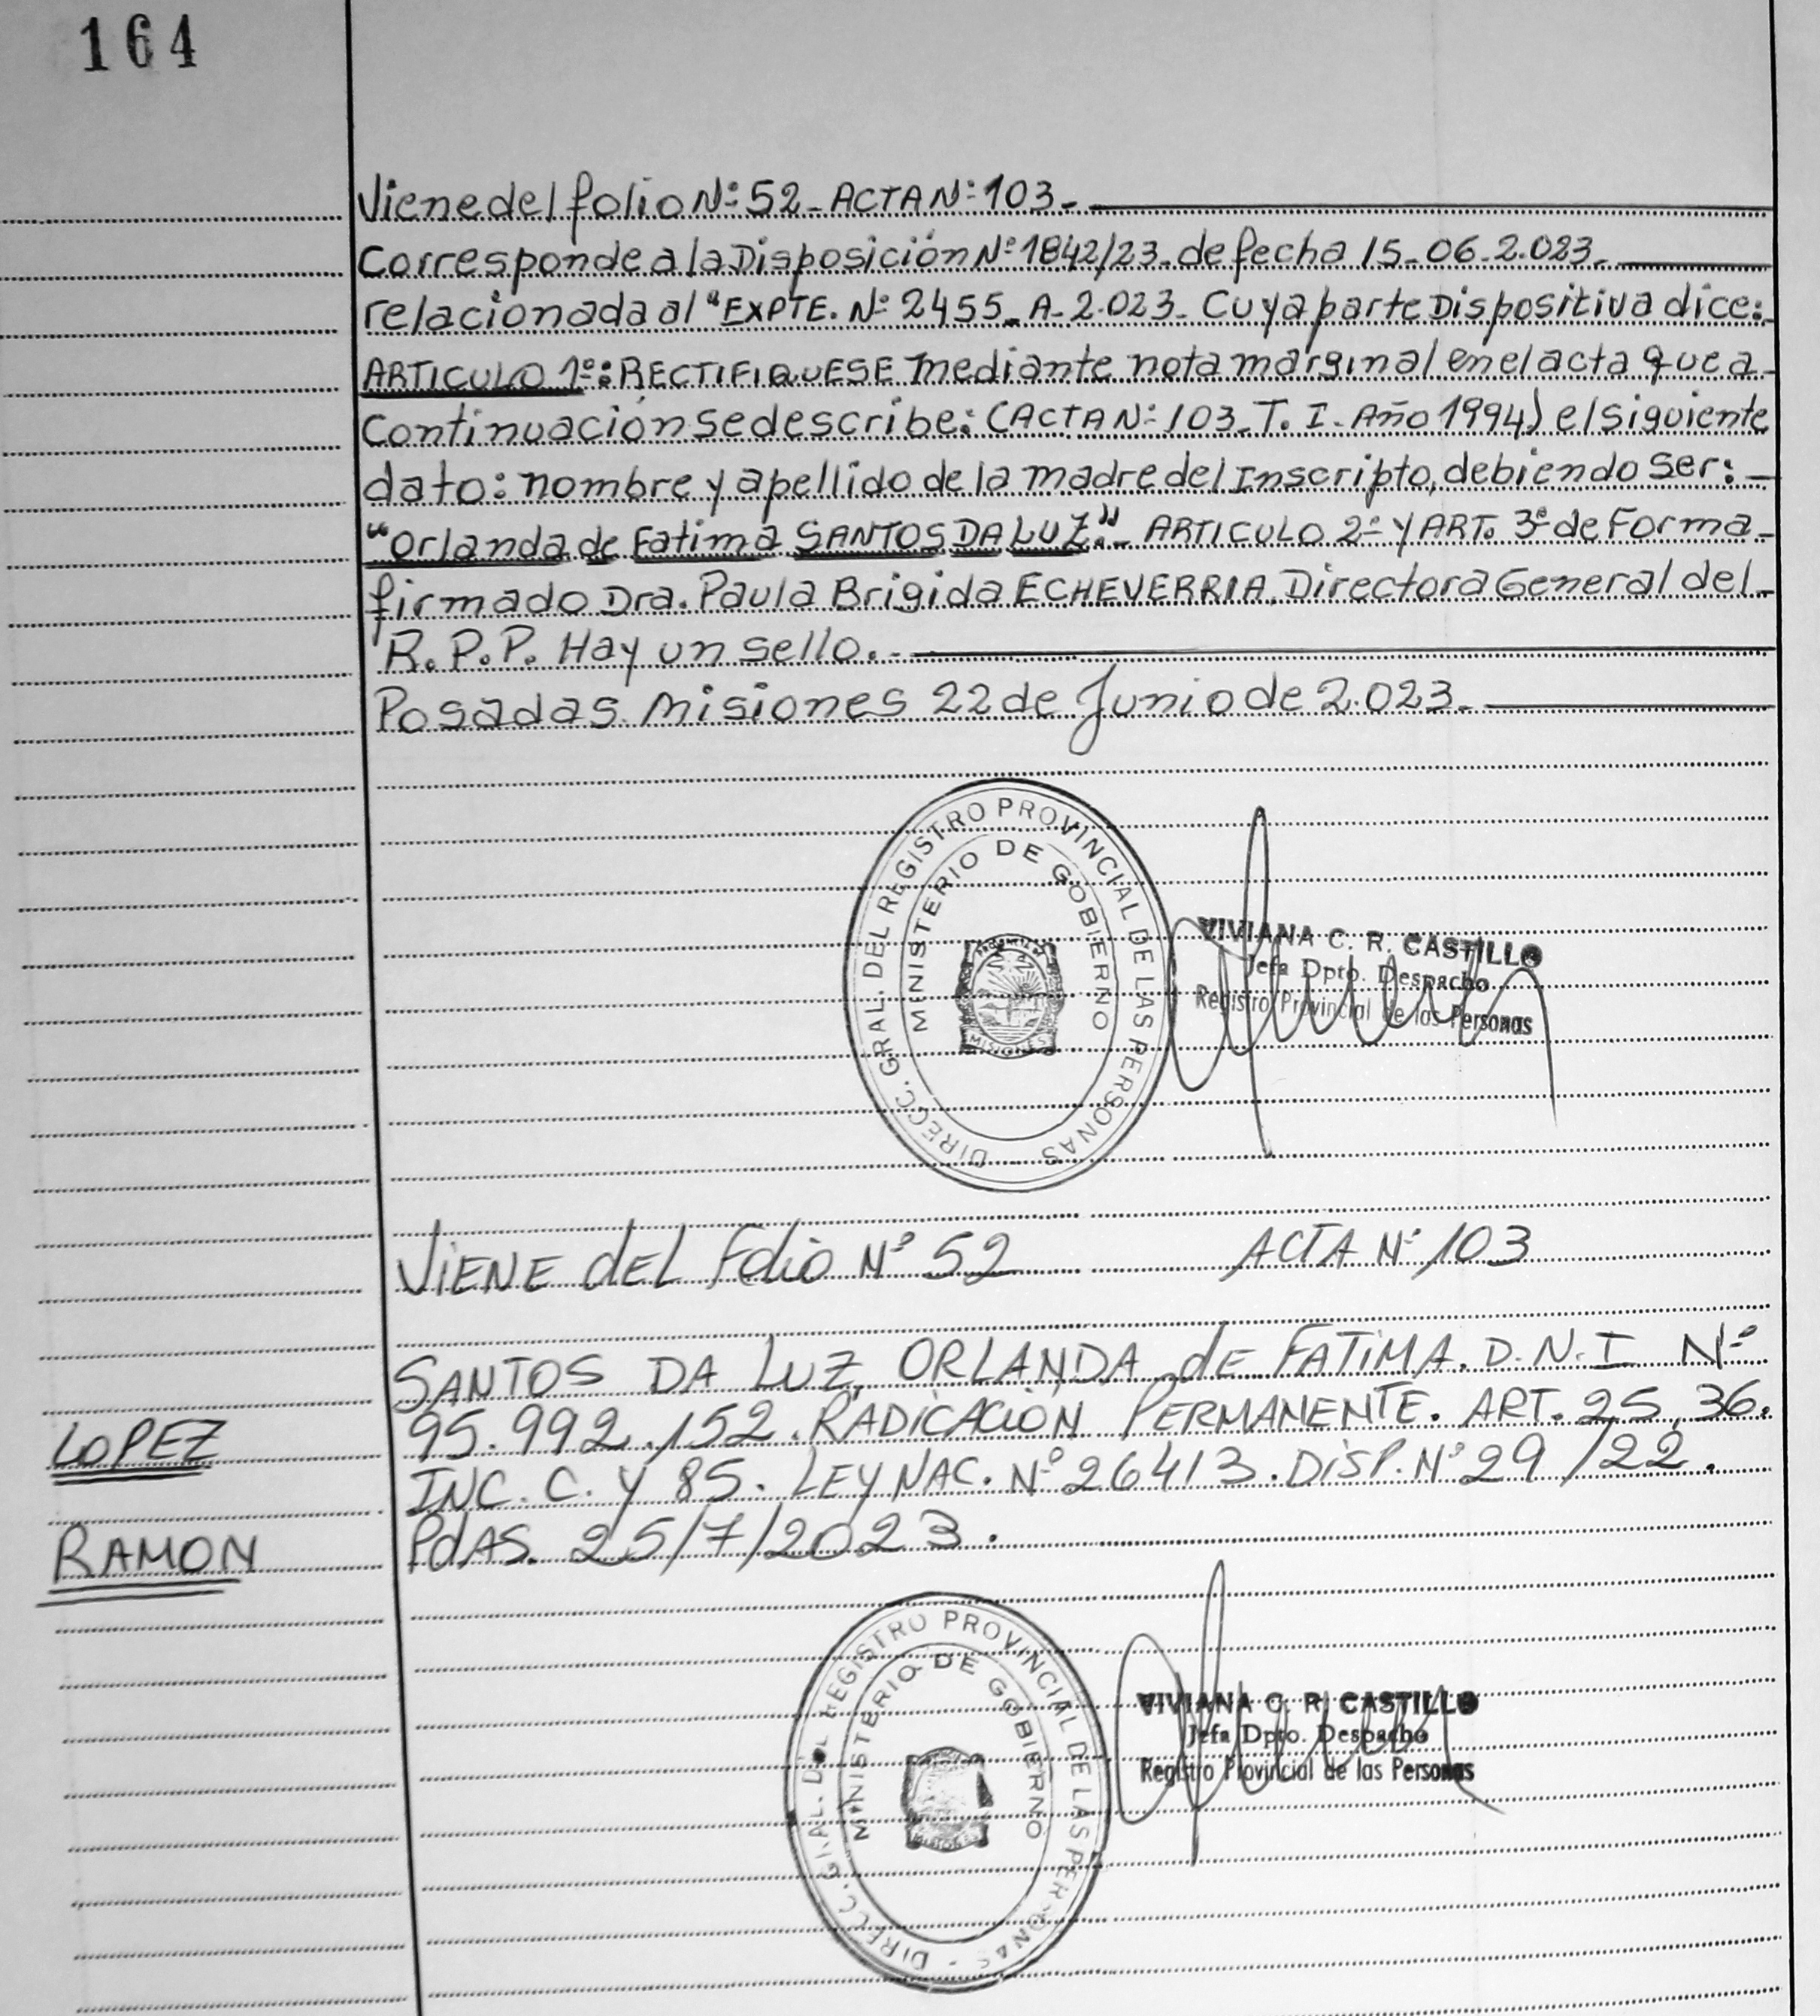 164
Viene del folio Nº 52 - ACTA Nº 103.-
Corresponde a la Disposición Nº 1842/23 - de fecha 15-06-2.023.-
relacionada al "EXPTE. Nº 2455 - A - 2.023 - Cuya parte Dispositiva dice:
ARTICULO 1º: RECTIFIQUESE mediante nota marginal en el acta que a
Continuación se describe: (ACTA Nº 103 - T. I - Año 1994) el siguiente
dato: nombre y apellido de la madre del Inscripto, debiendo ser: -
"Orlanda de Fatima SANTOS DA LUZ." - ARTICULO 2º y ART. 3º de Forma -
firmado Dra. Paula Brigida ECHEVERRIA, Directora General del -
R. P. P. Hay un sello. -
Posadas Misiones 22 de Junio de 2.023. -
DIRECC. GRAL. DEL REGISTRO PROVINCIAL DE LAS PERSONAS
MINISTERIO DE GOBIERNO
MISIONES
VIVIANA C. R. CASTILLO
Jefa Dpto. Despacho
Registro Provincial de las Personas
VIENE DEL Folio Nº 52 ACTA Nº 103
SANTOS DA LUZ, ORLANDA de FATIMA. D.N.I Nº
LOPEZ 95.992.152. RADICACION PERMANENTE. ART. 25, 36.
INC. C. Y 85. LEY NAC. Nº 26413. DISP. Nº 29/22.
RAMON PDAS. 25/7/2023.
DIRECC. GRAL. DEL REGISTRO PROVINCIAL DE LAS PERSONAS
MINISTERIO DE GOBIERNO
MISIONES
VIVIANA C. R. CASTILLO
Jefa Dpto. Despacho
Registro Provincial de las Personas